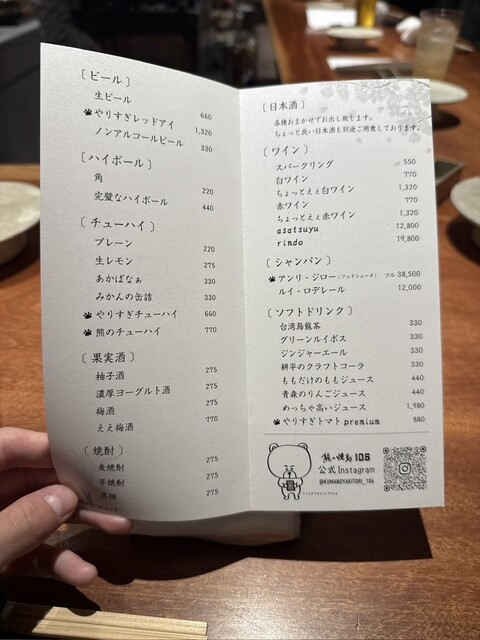 〔ビール〕
生ビール 660
やりすぎレッドアイ 1,320
ノンアルコールビール 330
〔ハイボール〕
角 220
完璧なハイボール 440
〔チューハイ〕
プレーン 220
生レモン 275
あかばなぁ 330
みかんの缶詰 330
やりすぎチューハイ 660
熊のチューハイ 770
〔果実酒〕
柚子酒 275
濃厚ヨーグルト酒 275
梅酒 275
ええ梅酒 770
〔焼酎〕
麦焼酎 275
芋焼酎 275
黒糖 275
〔日本酒〕
各種おまかせでお出し致します。
ちょっと良い日本酒も別途ご用意しております。
〔ワイン〕
スパークリング 550
白ワイン 770
ちょっとええ白ワイン 1,320
赤ワイン 770
ちょっとええ赤ワイン 1,320
asatsuyu 12,800
rindo 19,800
〔シャンパン〕
アンリ・ジロー フル 38,500
ルイ・ロデレール 12,000
〔ソフトドリンク〕
台湾烏龍茶 330
グリーンルイボス 330
ジンジャーエール 330
耕平のクラフトコーラ 330
ももだけのももジュース 440
青森のりんごジュース 440
めっちゃ高いジュース 1,980
やりすぎトマトpremium 880
熊の焼鳥 106
公式Instagram
@KUMANOYAKITORI_106